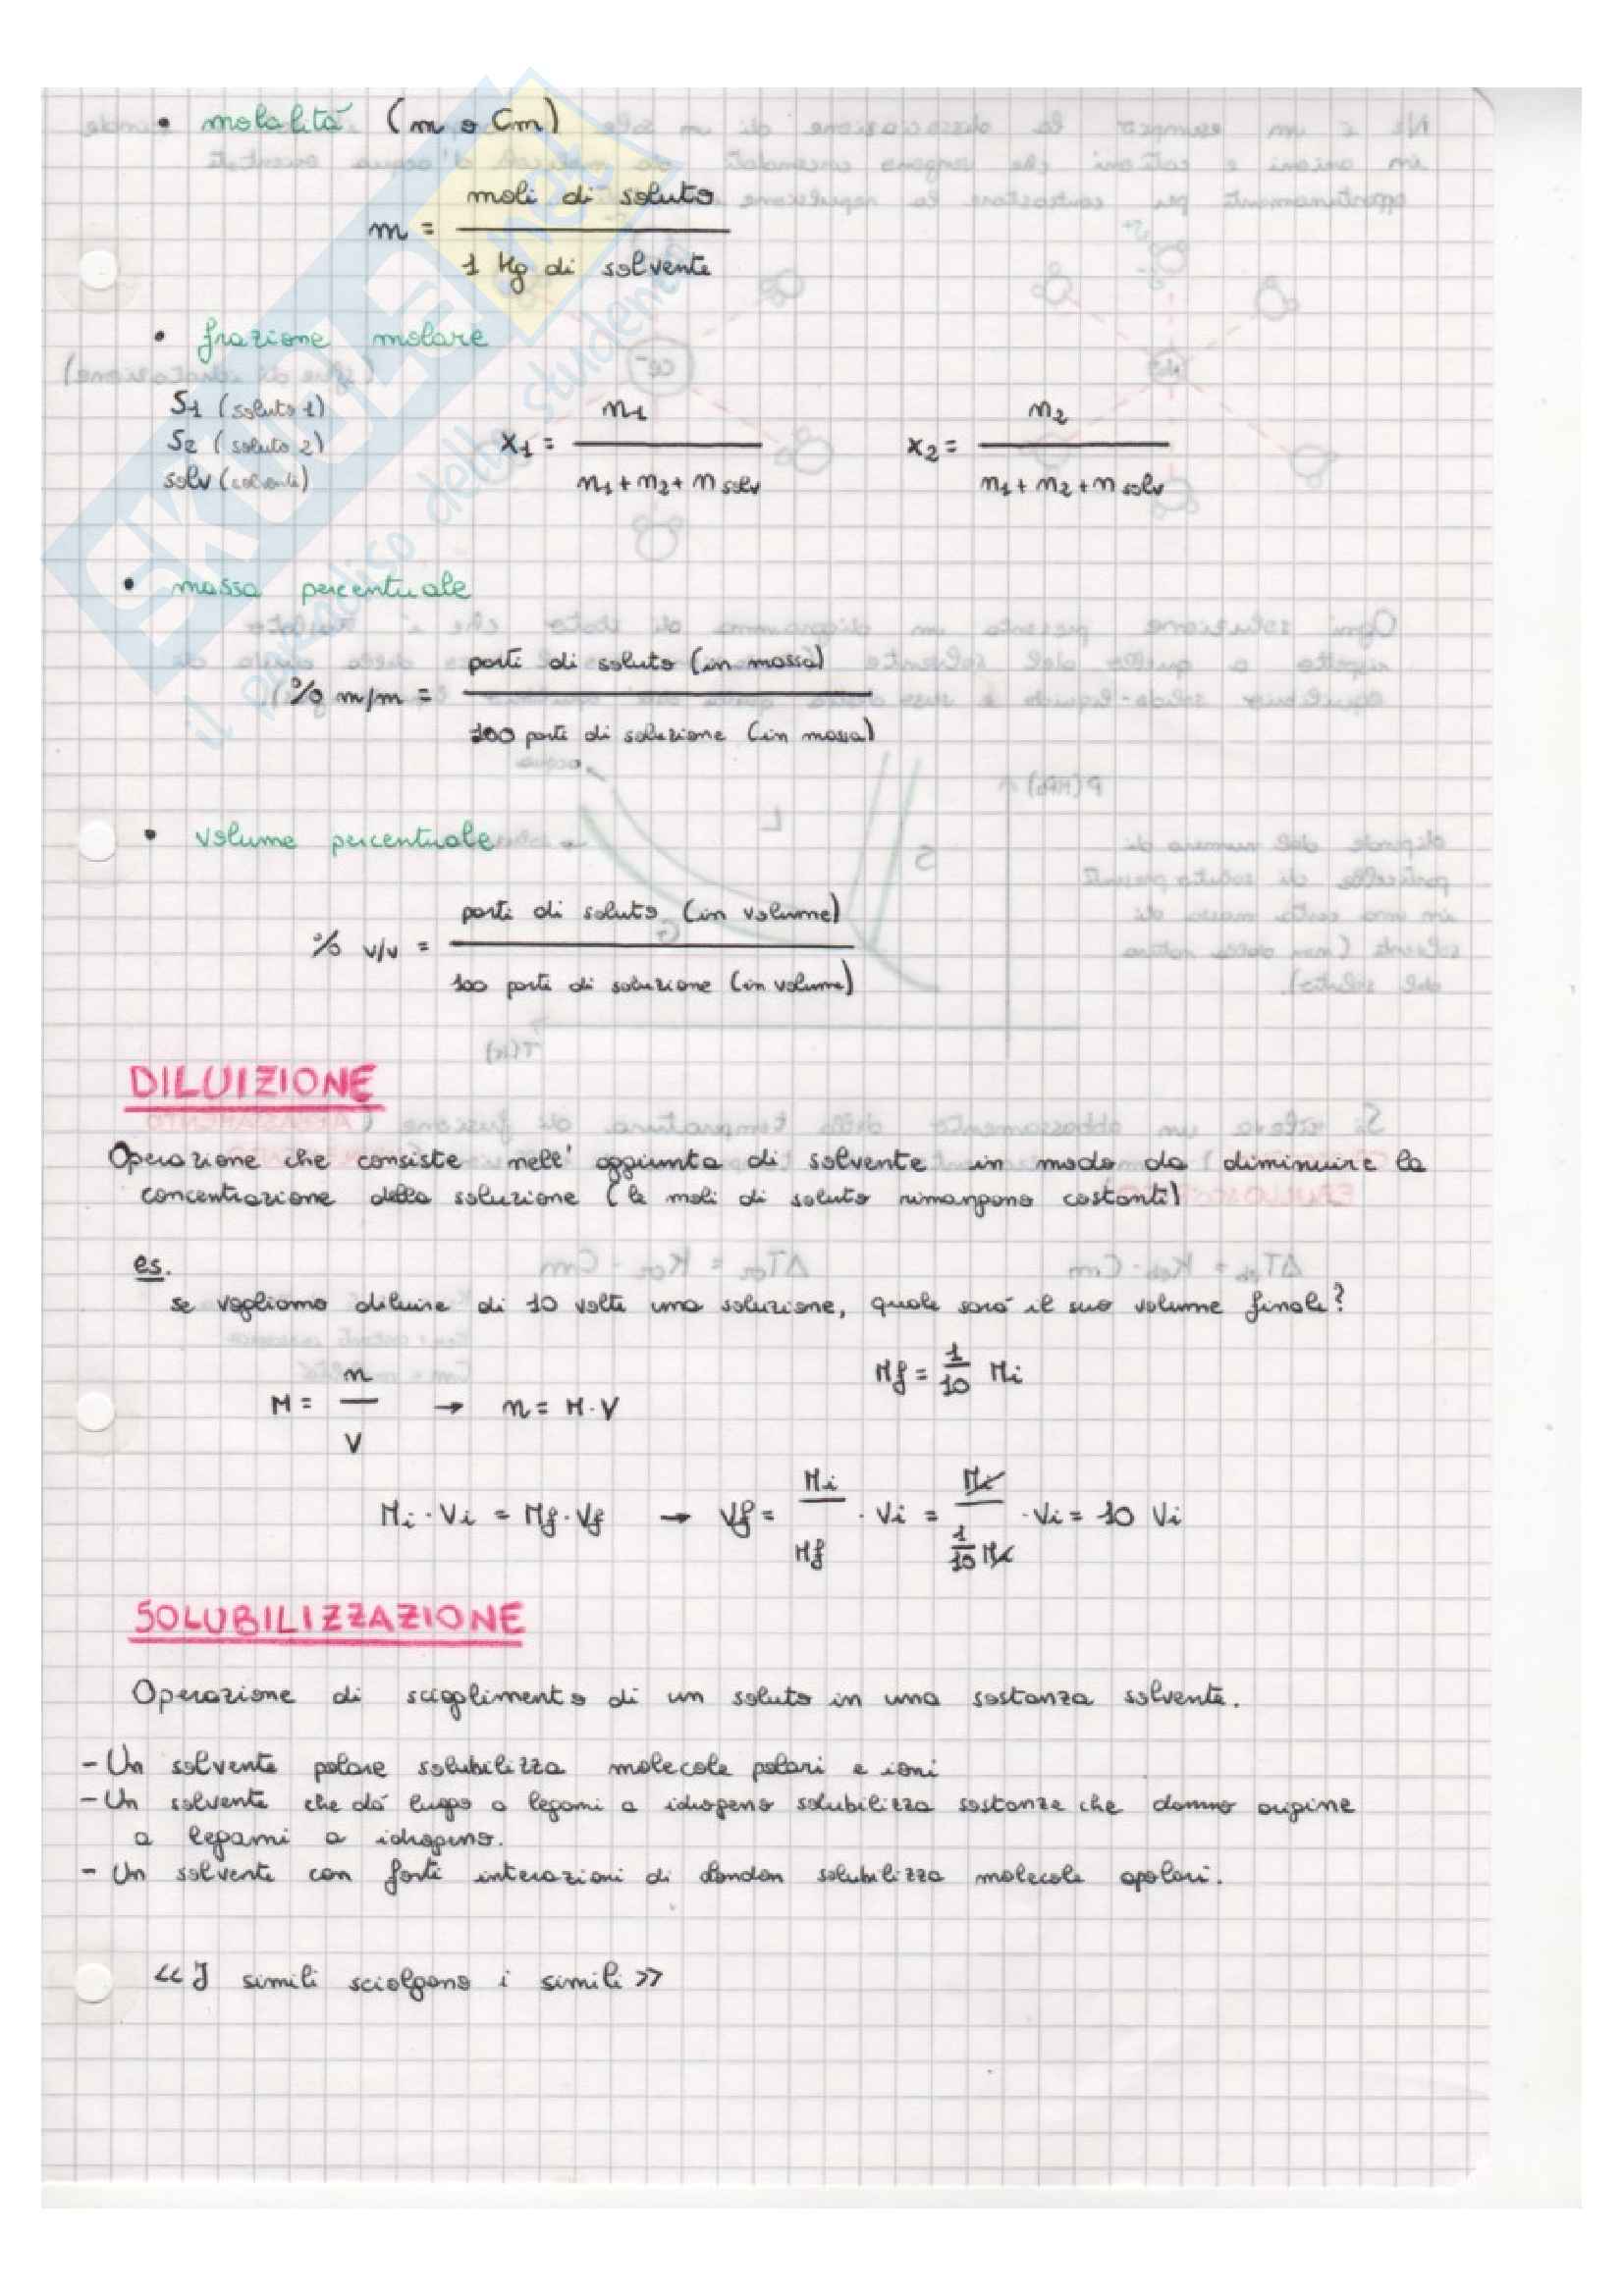 • molalità (m o Cm)
m = moli di soluto / 1 Kg di solvente
• frazione molare
S1 (soluto 1)
S2 (soluto 2)
solv (solvente)
x1 = n1 / n1 + n2 + n solv
x2 = n2 / n1 + n2 + n solv
• massa percentuale
% m/m = parti di soluto (in massa) / 100 parti di soluzione (in massa)
• volume percentuale
% v/v = parti di soluto (in volume) / 100 parti di soluzione (in volume)
DILUIZIONE
Operazione che consiste nell'aggiunta di solvente in modo da diminuire la
concentrazione della soluzione (le moli di soluto rimangono costanti)
es.
se vogliamo diluire di 10 volte una soluzione, quale sarà il suo volume finale?
Mf = 1/10 Mi
M = n / V → n = M · V
Mi · Vi = Mf · Vf → Vf = Mi / Mf · Vi = Mi / 1/10 Mi · Vi = 10 Vi
SOLUBILIZZAZIONE
Operazione di scioglimento di un soluto in una sostanza solvente.
- Un solvente polare solubilizza molecole polari e ioni
- Un solvente che dà luogo a legami a idrogeno solubilizza sostanze che danno origine
a legami a idrogeno.
- Un solvente con forti interazioni di London solubilizza molecole apolari.
<< I simili sciolgono i simili >>
SKUOLA.net
il paradiso dello studente